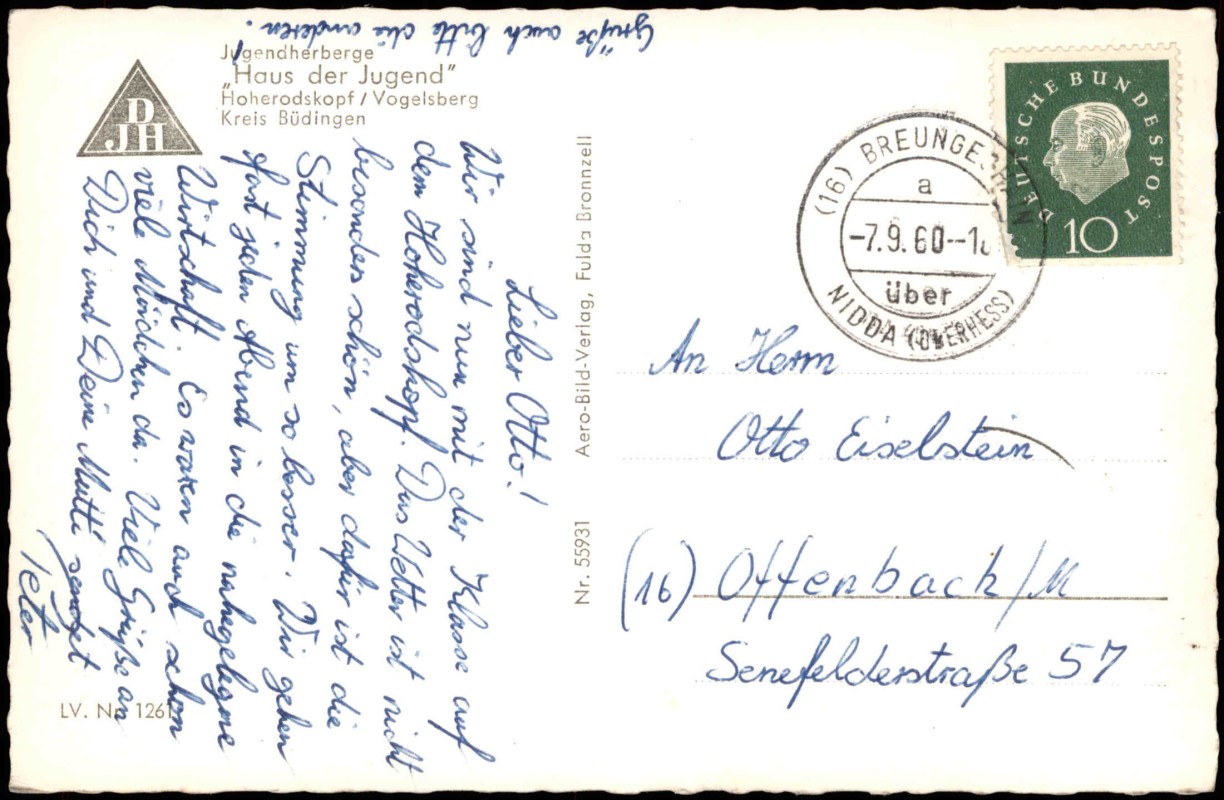 Jugendherberge
„Haus der Jugend"
Hoherodskopf / Vogelsberg
Kreis Büdingen
DJH
Lieber Otto!
Wir sind nun mit der Klasse auf
dem Hoherodskopf. Das Wetter ist nicht
besonders schön, aber dafür ist die
Stimmung um so besser. Wir gehen
fast jeden Abend in die nahegelegne
Wirtschaft. Es waren auch schon
viele Mädchen da. Viele Grüße an
Dich und Deine Mutti sendet
Peter
Grüße auch bitte die anderen!
LV. Nr. 1261
Aero-Bild-Verlag, Fulda Bronnzell
Nr. 55931
DEUTSCHE BUNDESPOST
10
(16) BREUNGESHAIN
a
-7.9.60--18
über
NIDDA (OBERHESS)
An Herrn
Otto Eiselstein
(16) Offenbach/M
Senefelderstraße 57